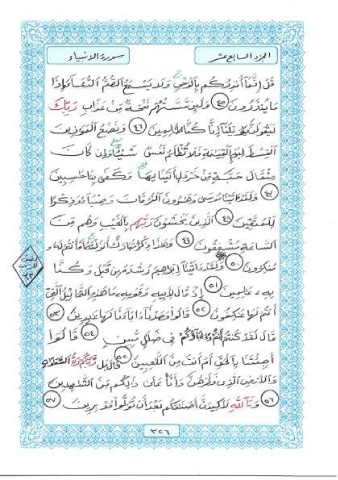 الجزء السابع عشر
سورة الأنبياء
قُلْ إِنَّمَا أُنذِرُكُم بِالْوَحْيِ وَلَا يَسْمَعُ الصُّمُّ الدُّعَاءَ إِذَا
مَا يُنذَرُونَ ٤٥ وَلَئِن مَّسَّتْهُمْ نَفْحَةٌ مِّنْ عَذَابِ رَبِّكَ
لَيَقُولُنَّ يَاوَيْلَنَا إِنَّا كُنَّا ظَالِمِينَ ٤٦ وَنَضَعُ الْمَوَازِينَ
الْقِسْطَ لِيَوْمِ الْقِيَامَةِ فَلَا تُظْلَمُ نَفْسٌ شَيْئًا وَإِن كَانَ
مِثْقَالَ حَبَّةٍ مِّنْ خَرْدَلٍ أَتَيْنَا بِهَا وَكَفَى بِنَا حَاسِبِينَ
٤٧ وَلَقَدْ آتَيْنَا مُوسَى وَهَارُونَ الْفُرْقَانَ وَضِيَاءً وَذِكْرًا
لِّلْمُتَّقِينَ ٤٨ الَّذِينَ يَخْشَوْنَ رَبَّهُم بِالْغَيْبِ وَهُم مِّنَ
السَّاعَةِ مُشْفِقُونَ ٤٩ وَهَذَا ذِكْرٌ مُّبَارَكٌ أَنزَلْنَاهُ أَفَأَنتُمْ لَهُ
مُنكِرُونَ ٥٠ وَلَقَدْ آتَيْنَا إِبْرَاهِيمَ رُشْدَهُ مِن قَبْلُ وَكُنَّا
بِهِ عَالِمِينَ ٥١ إِذْ قَالَ لِأَبِيهِ وَقَوْمِهِ مَا هَذِهِ التَّمَاثِيلُ الَّتِي
أَنتُمْ لَهَا عَاكِفُونَ ٥٢ قَالُوا وَجَدْنَا آبَاءَنَا لَهَا عَابِدِينَ ٥٣
قَالَ لَقَدْ كُنتُمْ أَنتُمْ وَآبَاؤُكُمْ فِي ضَلَالٍ مُّبِينٍ ٥٤ قَالُوا
أَجِئْتَنَا بِالْحَقِّ أَمْ أَنتَ مِنَ اللَّاعِبِينَ ٥٥ قَالَ بَل رَّبُّكُمْ رَبُّ السَّمَاوَاتِ
وَالْأَرْضِ الَّذِي فَطَرَهُنَّ وَأَنَا عَلَى ذَلِكُم مِّنَ الشَّاهِدِينَ
٥٦ وَتَاللَّهِ لَأَكِيدَنَّ أَصْنَامَكُم بَعْدَ أَن تُوَلُّوا مُدْبِرِينَ ٥٧
٣٢٦